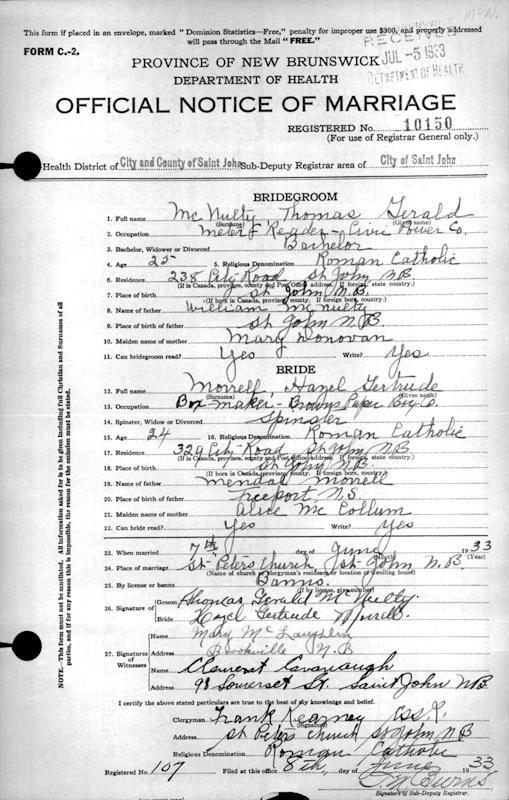 McN.
This form if placed in an envelope, marked "Dominion Statistics—Free," penalty for improper use $300, and properly addressed
will pass through the Mail "FREE."
FORM C.-2.
RECEIVED
JUL -5 1933
DEPARTMENT OF HEALTH
PROVINCE OF NEW BRUNSWICK
DEPARTMENT OF HEALTH
OFFICIAL NOTICE OF MARRIAGE
REGISTERED No. 10150
(For use of Registrar General only.)
Health District of City and County of Saint John Sub-Deputy Registrar area of City of Saint John
BRIDEGROOM
1. Full name McNulty Thomas Gerald
(Surname) (Given name)
2. Occupation Meter Reader - Civic Power Co.
3. Bachelor, Widower or Divorced Bachelor
4. Age 25 5. Religious Denomination Roman Catholic
6. Residence 238 City Road St John NB
(If in Canada, province, county and Post Office address. If foreign, state country.)
7. Place of birth St John N.B.
(If born in Canada, province. If foreign born, country.)
8. Name of father William McNulty
9. Place of birth of father St John N.B.
10. Maiden name of mother Mary Donovan
11. Can bridegroom read? Yes Write? Yes
BRIDE
12. Full name Morrell, Hazel Gertrude
(Surname) (Given name)
13. Occupation Box maker - Browns Paper Box Co.
14. Spinster, Widow or Divorced Spinster
15. Age 24 16. Religious Denomination Roman Catholic
17. Residence 329 City Road St John NB
(If in Canada, province, county and Post Office address. If foreign, state country.)
18. Place of birth St John NB
(If born in Canada, province. If foreign born, country.)
19. Name of father Mendal Morrell
20. Place of birth of father Freeport N.S.
21. Maiden name of mother Alice McCollum
22. Can bride read? Yes Write? Yes
23. When married 7th day of June 1933
(Month) (Year)
24. Place of marriage St. Peters Church St. John N.B.
(Name of church or clergyman's residence or location of dwelling house)
25. By license or banns Banns.
(If by license, give number)
26. Signature of Groom Thomas Gerald McNulty.
Bride Hazel Gertrude Morrell
27. Signatures of Witnesses
Name Mary McLaughlin
Address Brookville N.B
Name Clement Cavanaugh
Address 98 Somerset St. Saint John NB
I certify the above stated particulars are true to the best of my knowledge and belief.
Clergyman Frank Kearney CSS.R.
(Signature)
Address St Peters Church St John NB
Religious Denomination Roman Catholic
Registered No. 107 Filed at this office 8th, day of June 1933
Signature of Sub-Deputy Registrar.
NOTE.—This form must not be mutilated. All information asked for to be given including full Christian and Surnames of all parties, and if for any reason this is impossible, the reason for the omission must be stated.